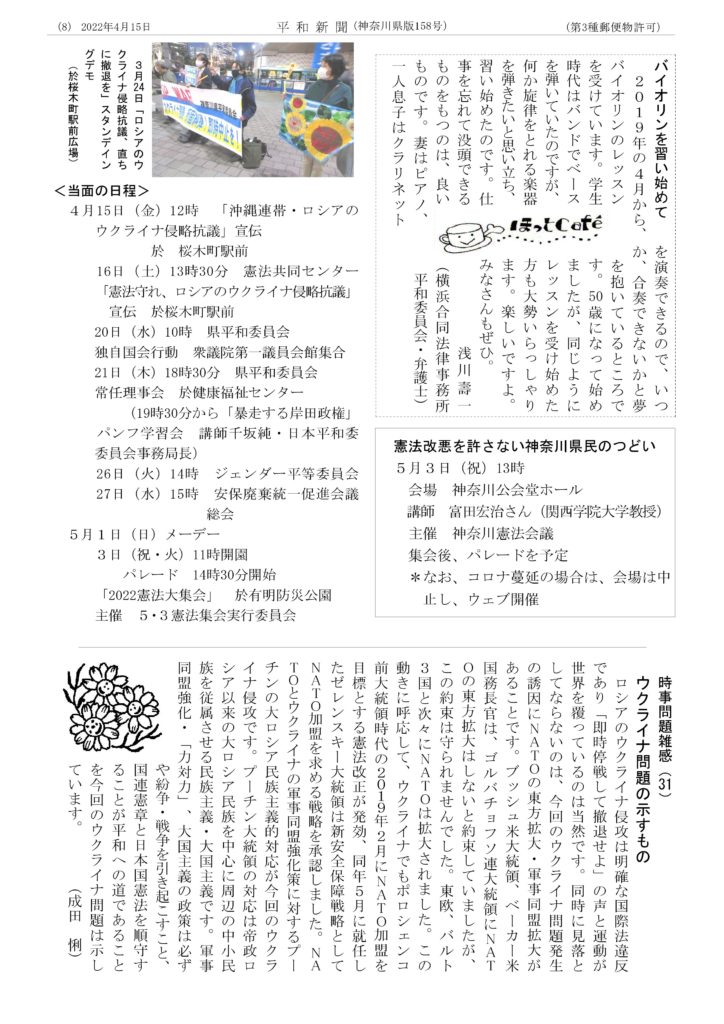 (8) 2022年4月15日
平 和 新 聞 (神奈川県版158号)
(第3種郵便物許可)
バイオリンを習い始めて
2019年の4月から、
バイオリンのレッスン
を受けています。学生
時代はバンドでベース
を弾いていたのですが、
何か旋律をとれる楽器
を弾きたいと思い立ち、
習い始めたのです。仕
事を忘れて没頭できる
ものをもつのは、良い
ものです。妻はピアノ、
一人息子はクラリネット
ほっとCafé
を演奏できるので、いつ
か、合奏できないかと夢
を抱いているところで
す。50歳になって始め
ましたが、同じように
レッスンを受け始めた
方も大勢いらっしゃり
ます。楽しいですよ。
みなさんもぜひ。
浅川 壽一
(横浜合同法律事務所
平和委員会・弁護士)
3月24日「ロシアのウ
クライナ侵略抗議、直ち
に撤退を」スタンデイン
グデモ
(於桜木町駅前広場)
<当面の日程>
4月15日(金)12時 「沖縄連帯・ロシアの
ウクライナ侵略抗議」宣伝
於 桜木町駅前
16日(土)13時30分 憲法共同センター
「憲法守れ、ロシアのウクライナ侵略抗議」
宣伝 於桜木町駅前
20日(水)10時 県平和委員会
独自国会行動 衆議院第一議員会館集合
21日(木)18時30分 県平和委員会
常任理事会 於健康福祉センター
(19時30分から「暴走する岸田政権」
パンフ学習会 講師千坂純・日本平和委
委員会事務局長)
26日(火)14時 ジェンダー平等委員会
27日(水)15時 安保廃棄統一促進会議
総会
5月1日(日)メーデー
3日(祝・火)11時開園
パレード 14時30分開始
「2022憲法大集会」 於有明防災公園
主催 5・3憲法集会実行委員会
憲法改悪を許さない神奈川県民のつどい
5月3日(祝)13時
会場 神奈川公会堂ホール
講師 富田宏治さん(関西学院大学教授)
主催 神奈川憲法会議
集会後、パレードを予定
*なお、コロナ蔓延の場合は、会場は中
止し、ウェブ開催
時事問題雑感(31)
ウクライナ問題の示すもの
ロシアのウクライナ侵攻は明確な国際法違反
であり「即時停戦して撤退せよ」の声と運動が
世界を覆っているのは当然です。同時に見落と
してならないのは、今回のウクライナ問題発生
の誘因にNATOの東方拡大・軍事同盟拡大が
あることです。ブッシュ米大統領、ベーカー米
国務長官は、ゴルバチョフソ連大統領にNAT
Oの東方拡大はしないと約束していましたが、
この約束は守られませんでした。東欧、バルト
3国と次々にNATOは拡大されました。この
動きに呼応して、ウクライナでもポロシェンコ
前大統領時代の2019年2月にNATO加盟を
目標とする憲法改正が発効、同年5月に就任し
たゼレンスキー大統領は新安全保障戦略として
NATO加盟を求める戦略を承認しました。NA
TOとウクライナの軍事同盟強化策に対するプー
チンの大ロシア民族主義的対応が今回のウクラ
イナ侵攻です。プーチン大統領の対応は帝政ロ
シア以来の大ロシア民族を中心に周辺の中小民
族を従属させる民族主義・大国主義です。軍事
同盟強化・「力対力」、大国主義の政策は必ず
や紛争・戦争を引き起こすこと、
国連憲章と日本国憲法を順守す
ることが平和への道であること
を今回のウクライナ問題は示し
ています。
(成田 悧)